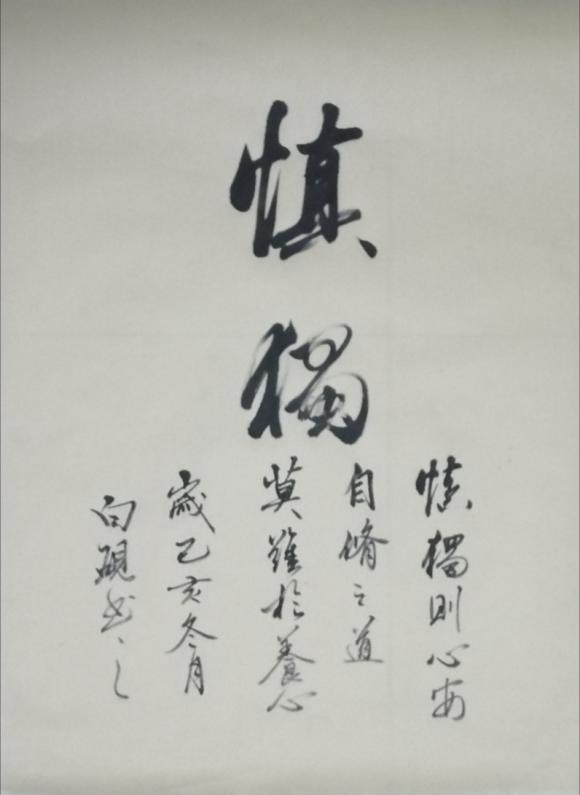 慎獨
慎獨則心安
自脩之道
莫難於養心
歲己亥冬月
白硯書之